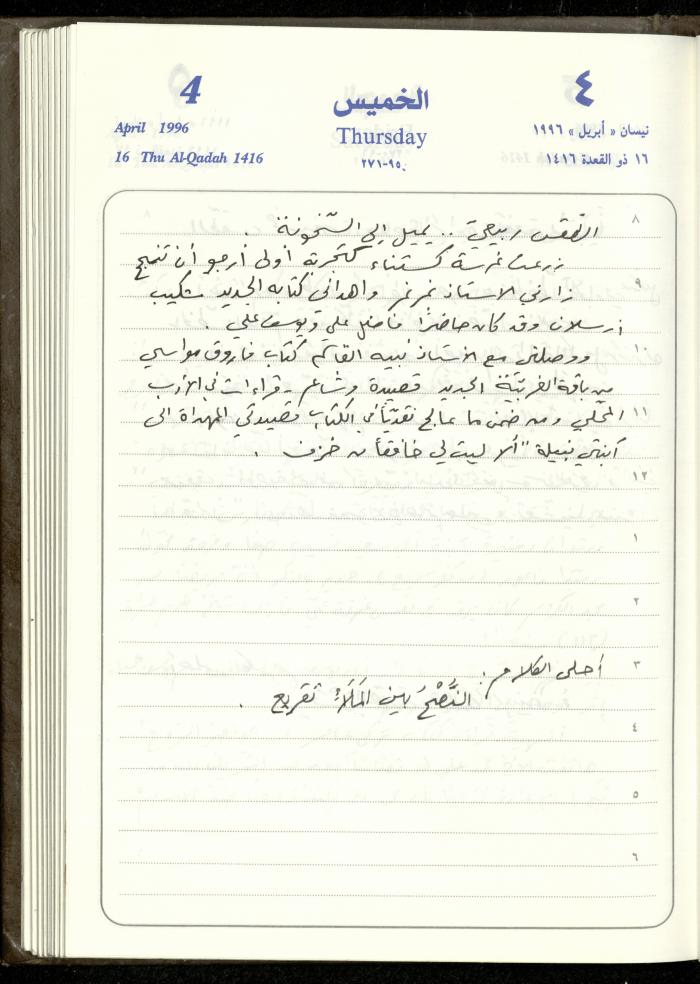 4
الخميس
٤
April 1996
Thursday
نيسان « أبريل » ١٩٩٦
16 Thu Al-Qadah 1416
٩٥-٢٧١
١٦ ذو القعدة ١٤١٦
٨
الطقس ربيعي .. يميل إلى السّخونة .
زرعت غرسة كستناء كتجربة أولى أرجو أن تنجح
٩
زارني الاستاذ نمر نمر واهداني كتابه الجديد شكيب
أرسلان وقد كان حاضرًا فاضل علي ويوسف علي .
١٠
ووصلني مع الأستاذ نبيه القاسم كتاب فاروق مواسي
من باقة الغربيّة الجديد قصيدة وشاعر - قراءات في الأدب
١١
المحلي ومن ضمن ما عالج نقديًا في الكتاب قصيدتي المهداة الى
أبنتي نبيلة "ألا ليت لي خافقاً من خزف .
١٢
١
٢
٣
أحلى الكلام :
النُّصْحُ بين المَلَاءِ تقريع .
٤
٥
٦